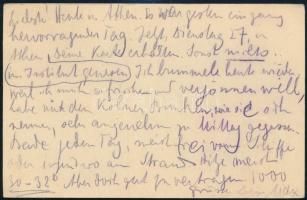 Heute in Athen. Es war gestern ein ganz
hervorragender Tag. Jetzt, Dienstag 17, in
Athen, Deine Karte erhalten. Sonst nichts.
(im Institut gewesen) Ich bummele heute
weil ich mich erfrischen und versonnen will
habe mit den Kölner wie sie sich
nennen, sehr angenehm zu Mittag gegessen
Bade jeden Tag, meist frei vom
oder irgendwo am Strand. Hitze meist
30-32° Aber doch gut zu vertragen. 1000
Grüsse Dein Max